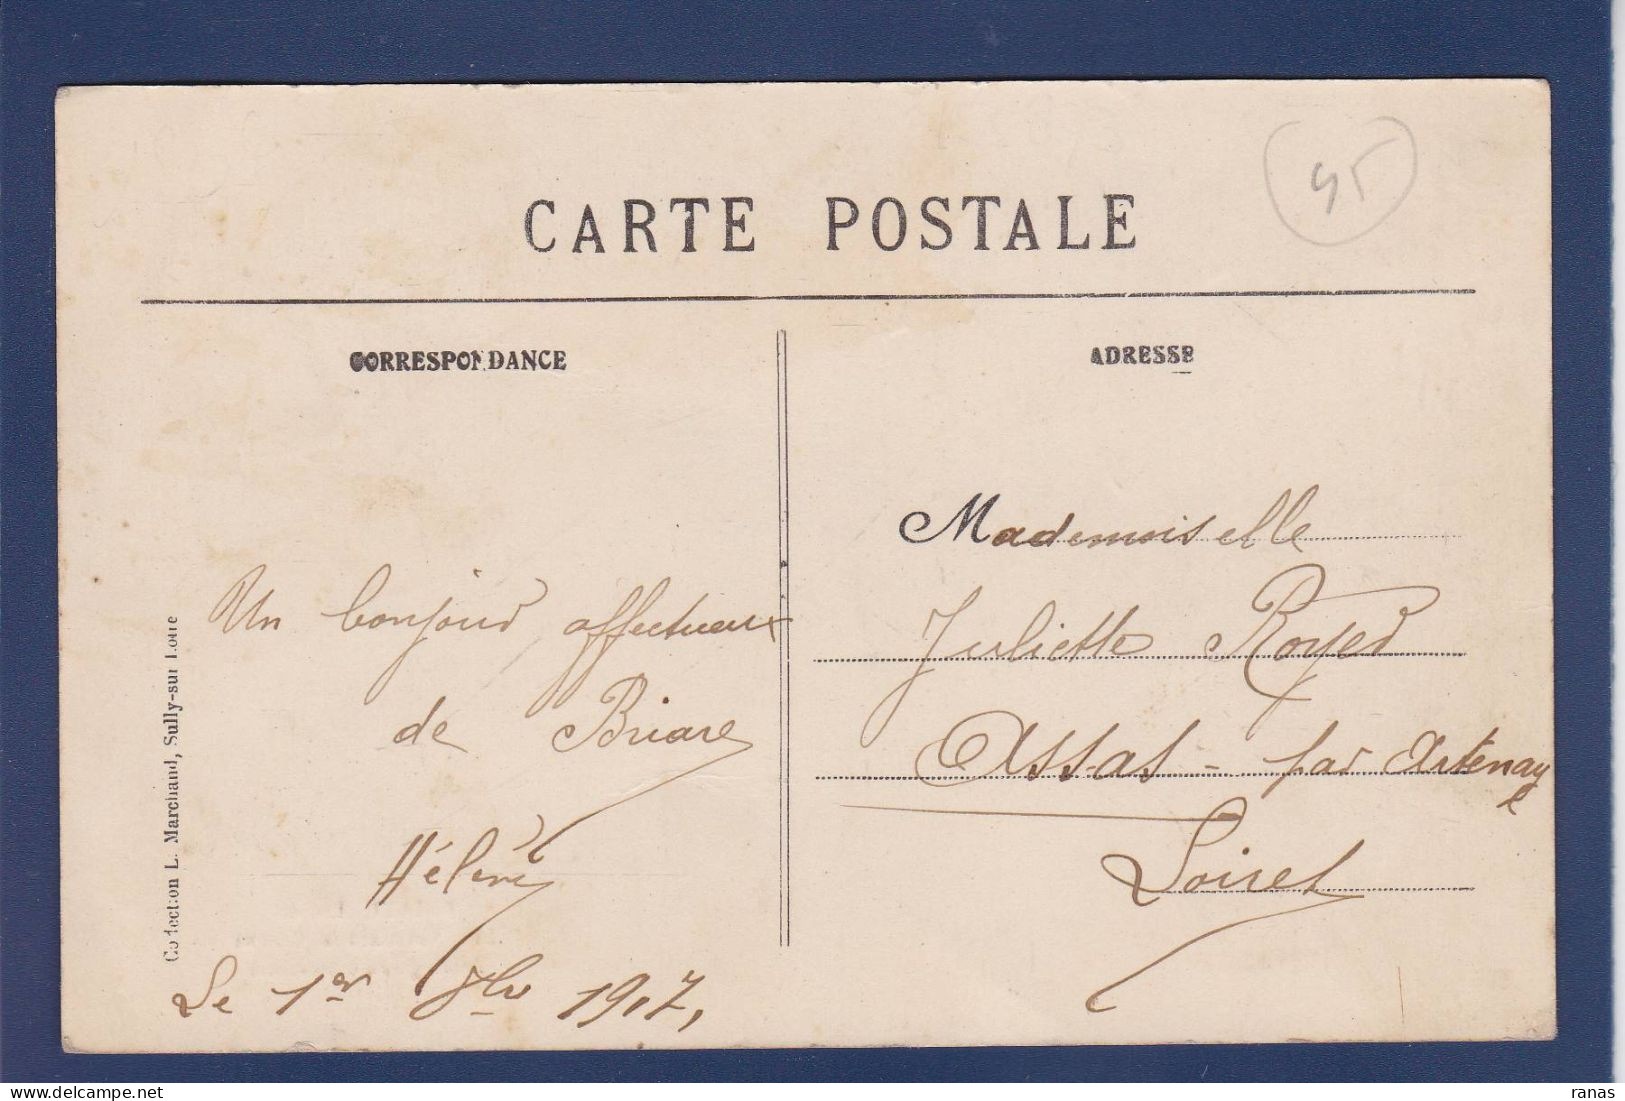 CARTE POSTALE
45
CORRESPONDANCE
ADRESSE
Un bonjour affectueux
de Briare
Hélène
Le 1er 1907,
Mademoiselle
Juliette Royer
Assas - par Artenay
Loiret
Collection L. Marchand, Sully-sur Loire
ranas